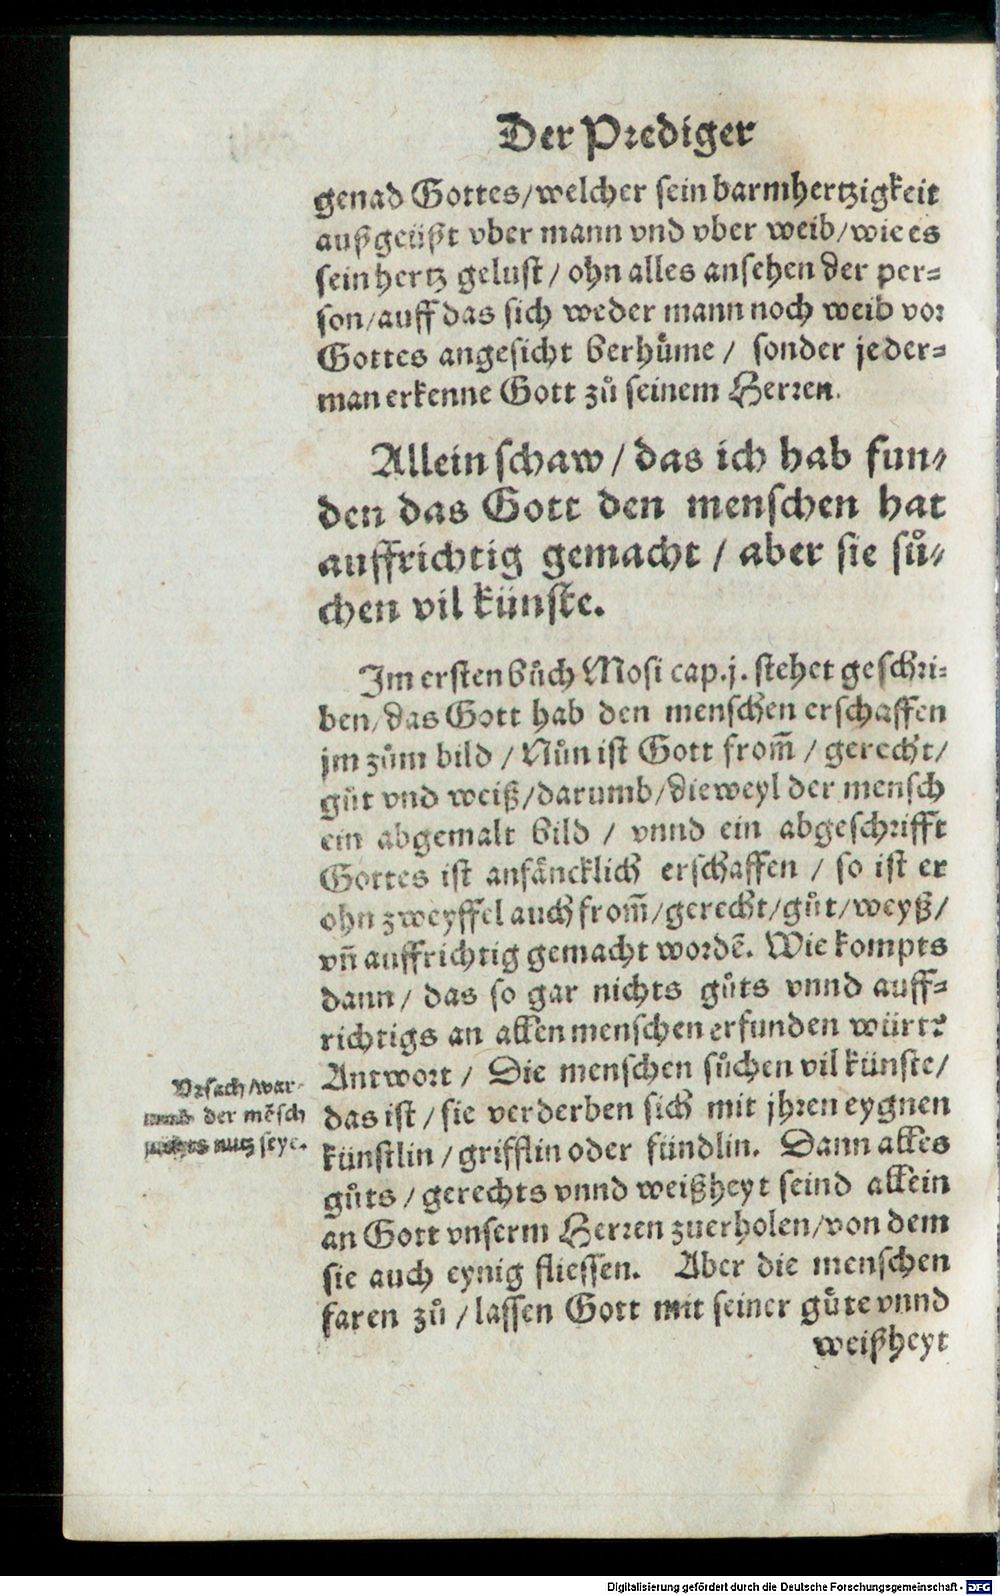 Der Prediger
genad Gottes/welcher sein barmhertzigkeit
außgeüßt vber mann vnd vber weib/wie es
sein hertz gelust/ohn alles ansehen der per-
son/auff das sich weder mann noch weib vor
Gottes angesicht berhůme/ sonder jeder-
man erkenne Gott zů seinem Herren.
Allein schaw/das ich hab fun-
den das Gott den menschen hat
auffrichtig gemacht/aber sie sů-
chen vil künste.
Im ersten bůch Mosi cap.j. stehet geschri-
ben/das Gott hab den menschen erschaffen
jm zům bild/Nůn ist Gott from̃/gerecht/
gůt vnd weiß/darumb/dieweyl der mensch
ein abgemalt bild/ vnnd ein abgeschrifft
Gottes ist anfäncklich erschaffen/so ist er
ohn zweyffel auch from̃/gerecht/gůt/weyß/
vñ auffrichtig gemacht wordẽ. Wie kompts
dann/das so gar nichts gůts vnnd auff-
richtigs an allen menschen erfunden würt?
Vrsach/war-
umb der mẽsch
nichts nutz seye.
Antwort/ Die menschen sůchen vil künste/
das ist/sie verderben sich mit jhren eygnen
künstlin/grifflin oder fündlin. Dann alles
gůts/gerechts vnnd weißheyt seind allein
an Gott vnserm Herren zuerholen/von dem
sie auch eynig fliessen. Aber die menschen
faren zů/lassen Gott mit seiner gůte vnnd
weißheyt
Digitalisierung gefördert durch die Deutsche Forschungsgemeinschaft - DFG